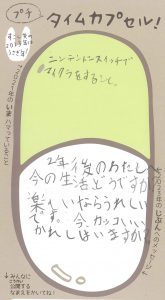 プチ
タイムカプセル!
ニンテンドースイッチで
マイクラをすること。
↑2021年のいまハマっていること
2023年のじぶんへのメッセージ
2年後のわたしへ
今の生活どうですか
楽しいならうれしい
です。今、カッコいい
かれしはいますか?
↓みんなに
公開する
なまえをかいてね!